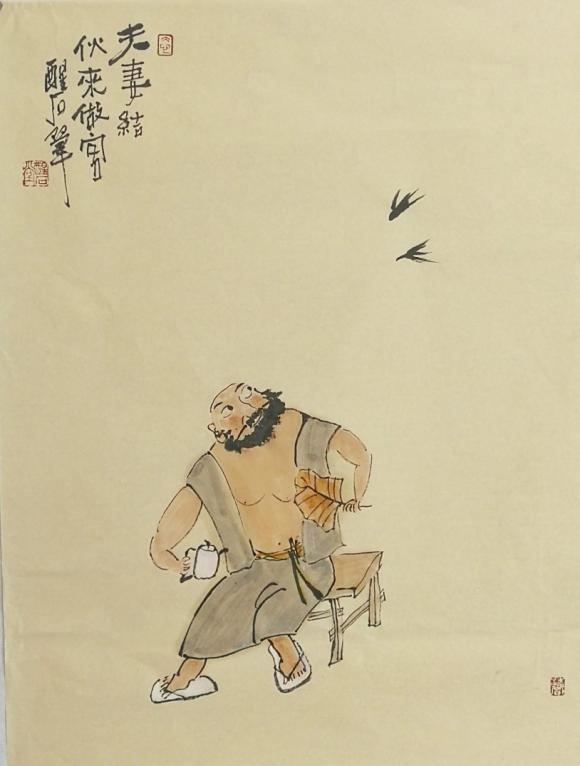 夫妻結
伙來做窩
醒石筆